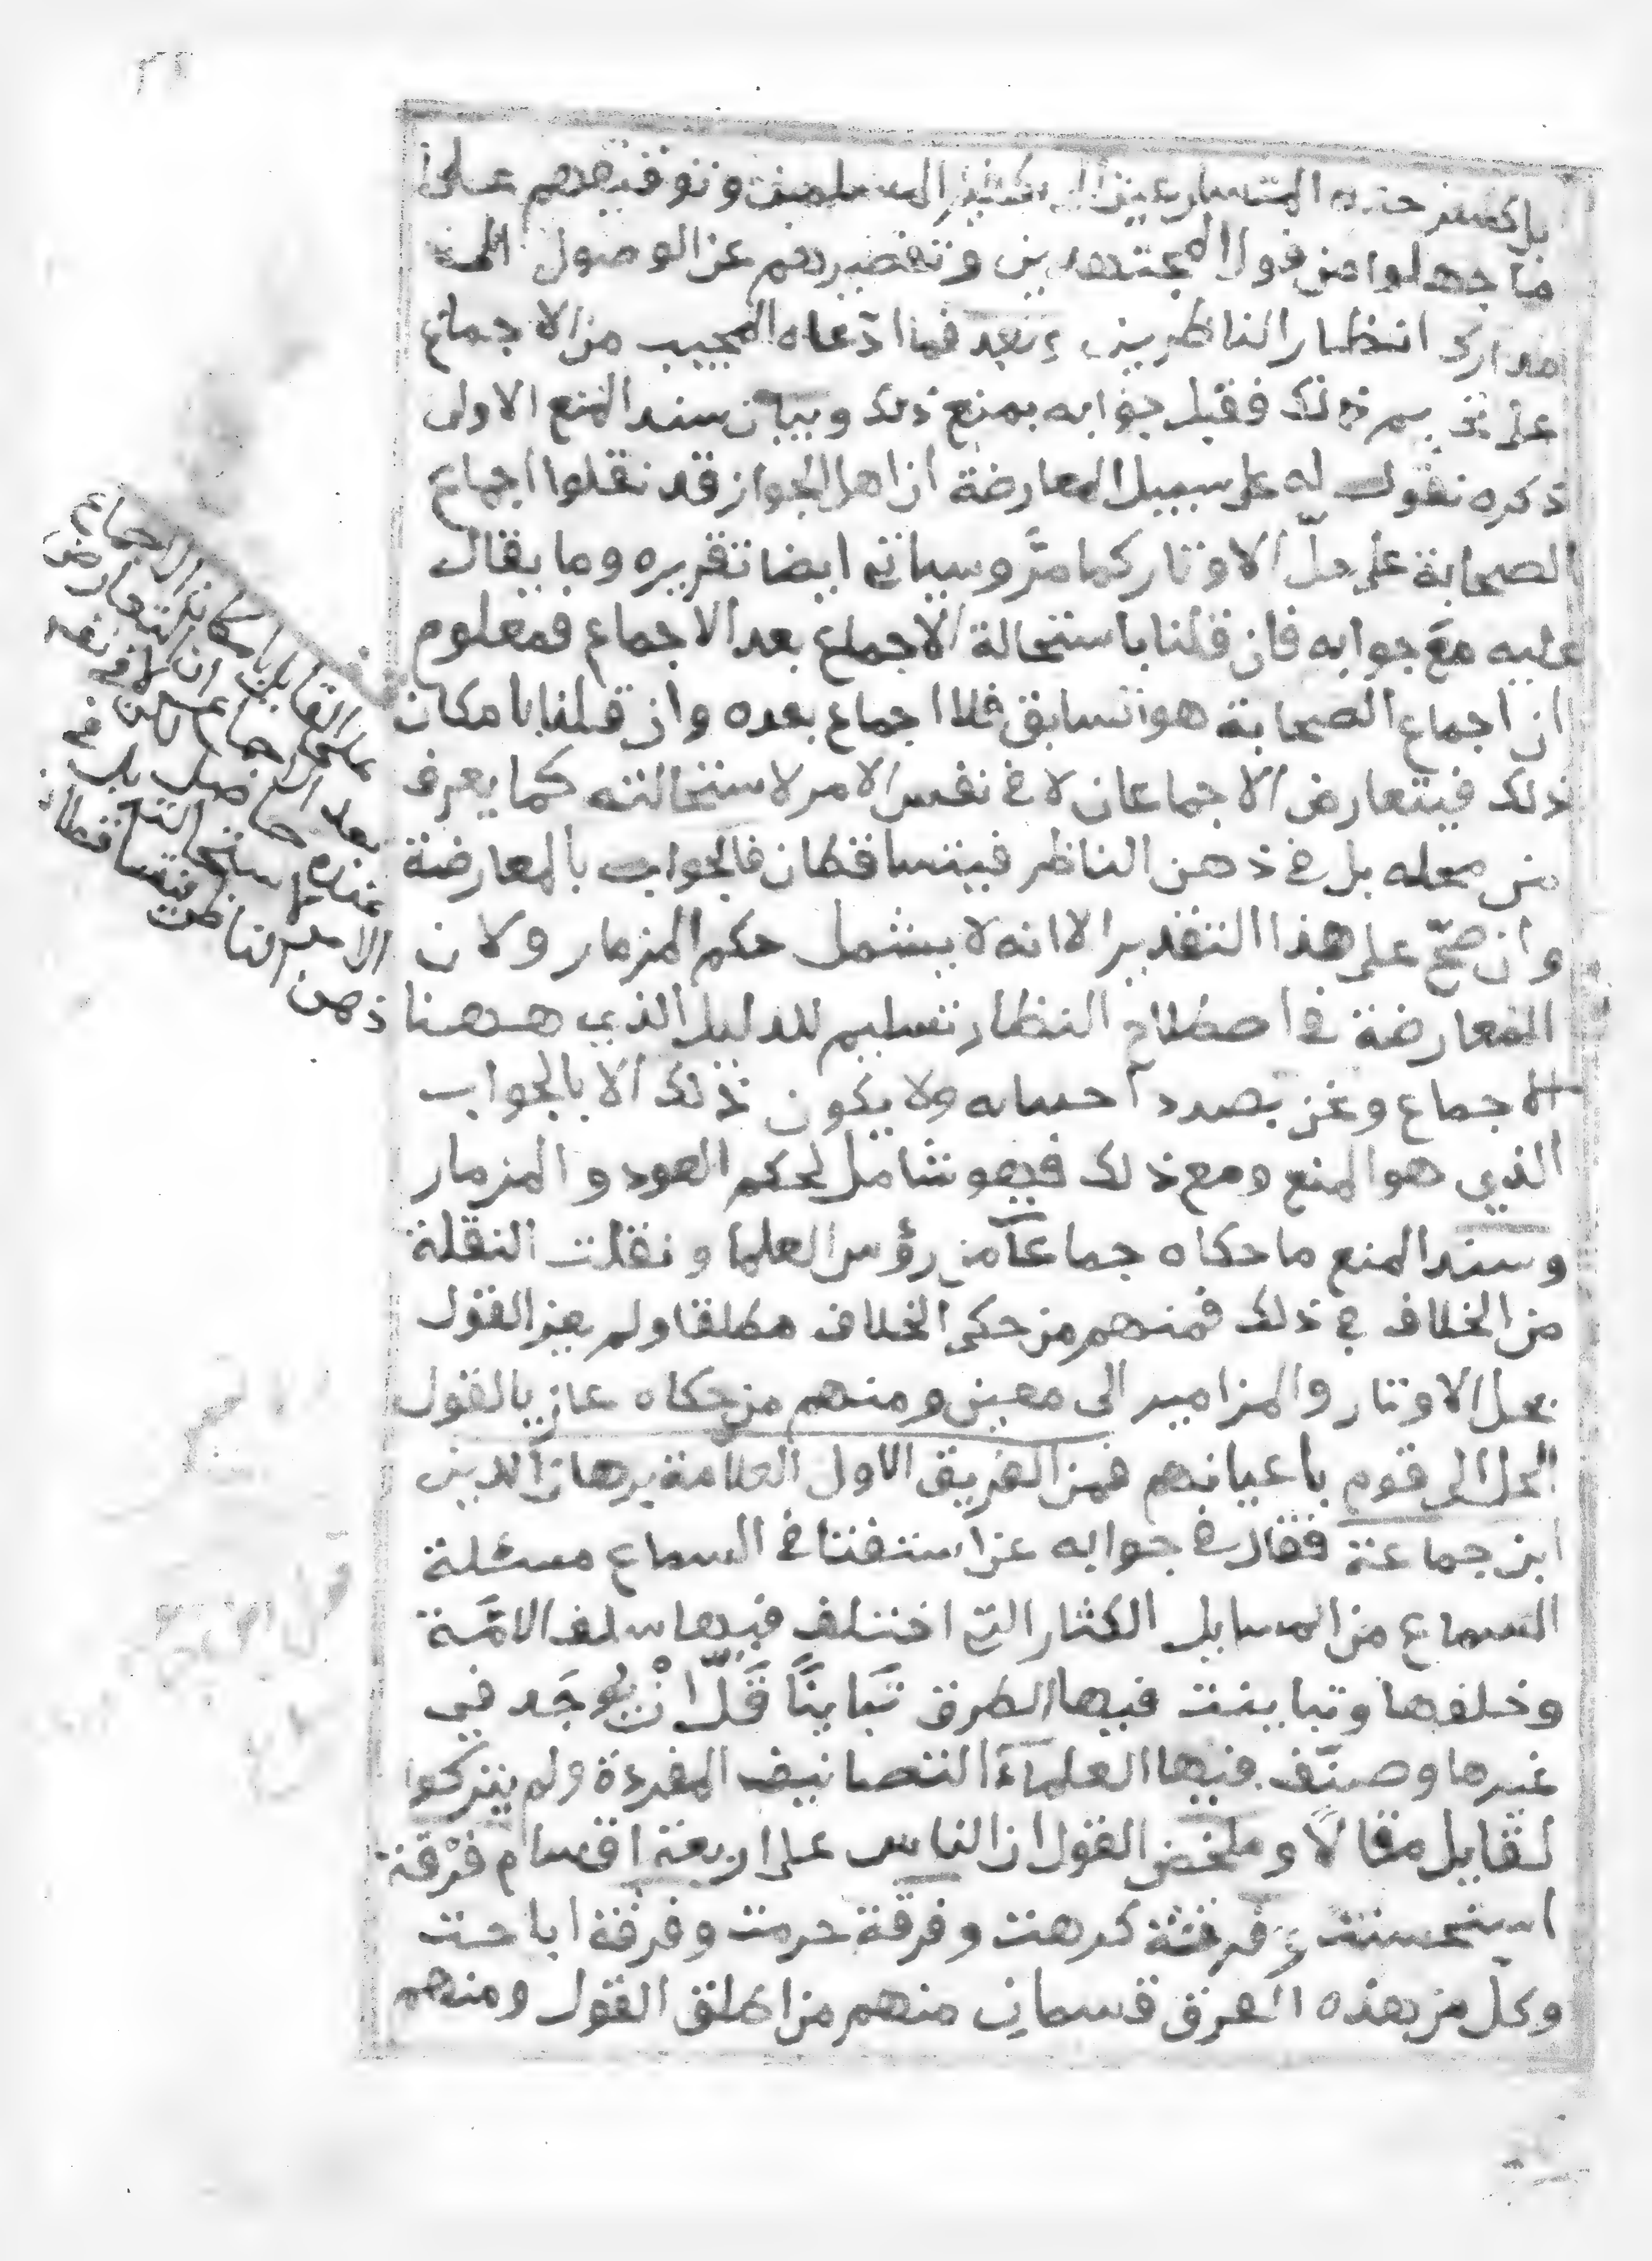 المتسارعين الى تكفير المسلمين وتوقيفهم على
ما جهلوا من قول المجتهدين وتقصيرهم عن الوصول الى
مدارك انظار الناظرين وبعد فما ادعاه المجيب من الاجماع
على تحريم ذلك فقبل جوابه بمنع ذلك وبيان سند المنع الاولى
ذكره نقول له على سبيل المعارضة ان اهل الجواز قد نقلوا اجماع
الصحابة على حلّ الاوتار كما مرَّ وسياتي ايضا تقريره وما يقال
عليه معَ جوابه فان قلنا باستحالة الاجماع بعد الاجماع فمعلوم
ان اجماع الصحابة هو السابق فلا اجماع بعده وان قلنا بامكان
ذلك فيتعارض الاجماعان لا في نفس الامر لاستحالته كما يعرف
من محله بل في ذهن الناظر فيتساقطان فالجواب بالمعارضة
وان صحّ على هذا التقدير الا انه لا يشمل حكم المزمار ولان
المعارضة في اصطلاح النظار تسليم للدليل الذي ههنا
الاجماع ونحن بصدد ولا يكون ذلك الا بالجواب
الذي هو المنع ومع ذلك فهو شامل لحكم العود والمزمار
وسند المنع ما حكاه جماعة من رؤس العلما ونقلت النقلة
من الخلاف في ذلك فمنهم من حكى الخلاف مطلقا ولم يعز القول
بحل الاوتار والمزامير الى معين ومنهم من حكاه عاز بالقول
الحل الى قوم باعيانهم فمن الفريق الاول العلامة برهان الدين
ابن جماعة فقال في جوابه عن استفتا في السماع مسئلة
السماع من المسايل الكثار التي اختلف فيها سلف الامّة
وخلفها وتباينت فيها الطرق تَباينًا قَلّ انْ يُوجَد في
غيرها وصنّف فيها العلماءَ التصانيف المفردة ولم يتركوا
لقايل مقالاً وملخص القول ان الناس على اربعة اقسام فرْقة
استحسنت وفرقة كرهت وفرقة حرمت وفرقة اباحت
وكلّ من هذه الفرق قسمان منهم من اطلق القول ومنهم
القايل بامكان الاجماع
بعد الاجماع
ذهن